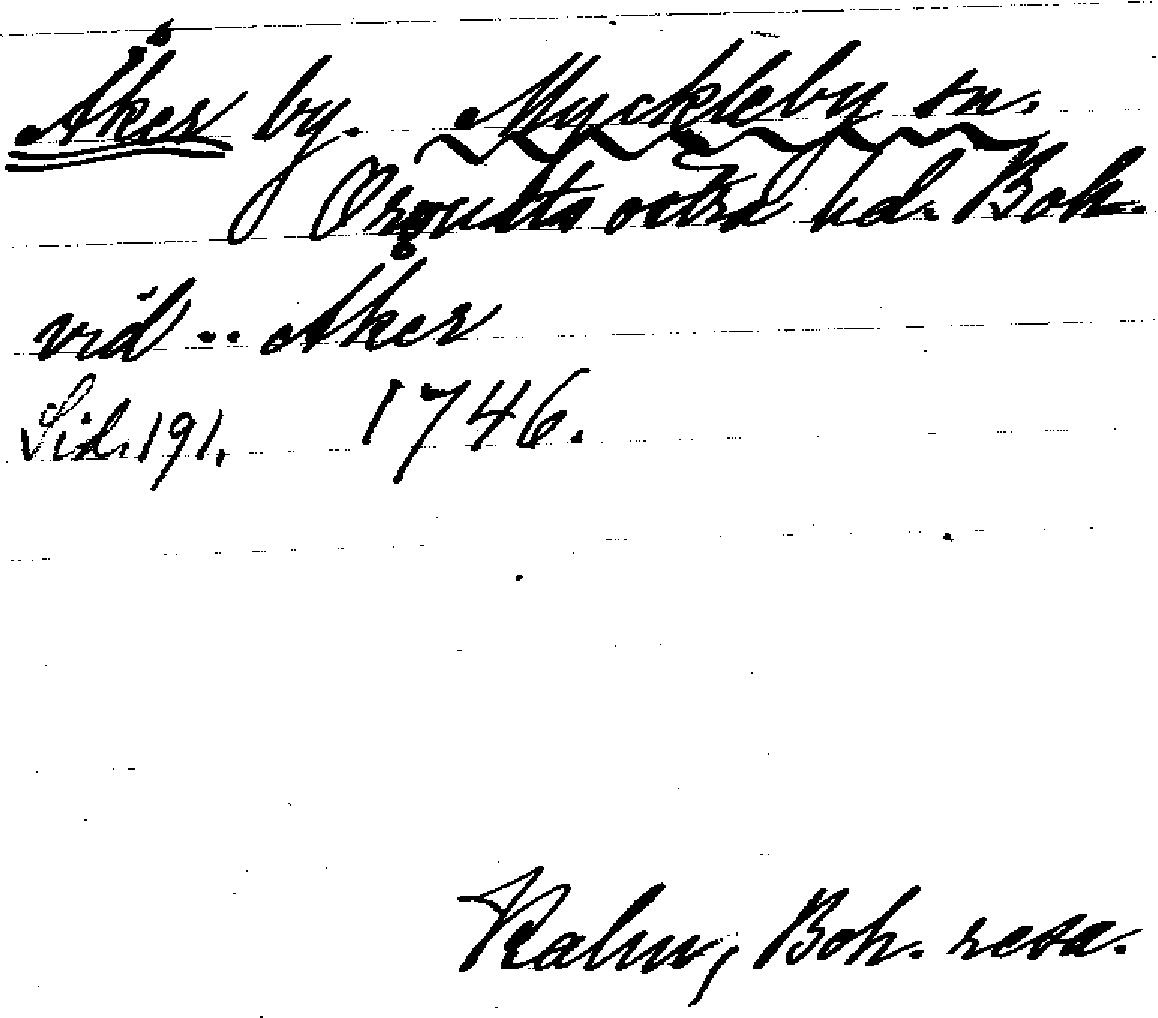 Åker by. Myckleby sn.
Orousts östra hd. Boh.
vid .. Åker
Sid. 191. 1746.
Kalm, Boh. resa.